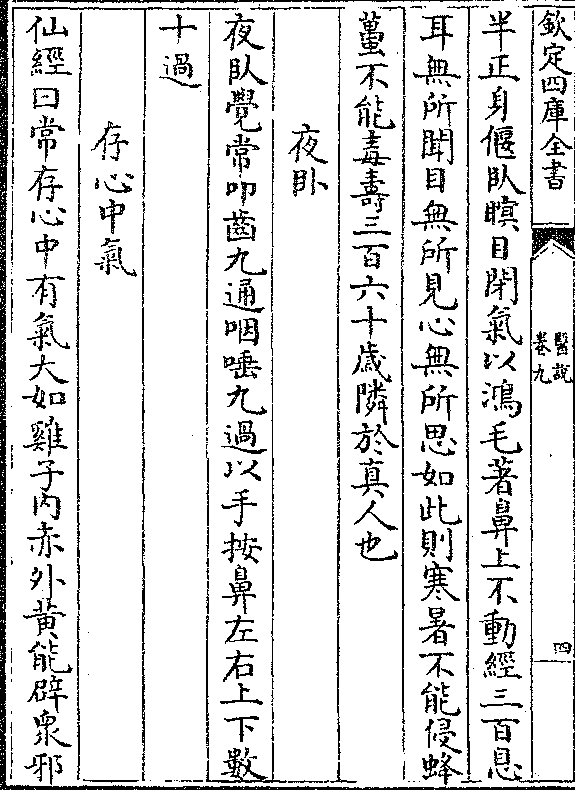 欽定四庫全書
醫說
卷九
四
半正身偃臥瞑目閉氣以鴻毛著鼻上不動經三百息
耳無所聞目無所見心無所思如此則寒暑不能侵蜂
蠆不能毒壽三百六十歲隣於真人也
夜臥
夜臥覺常叩齒九通咽唾九過以手按鼻左右上下數
十過
存心中氣
仙經曰常存心中有氣大如雞子内赤外黄能辟衆邪